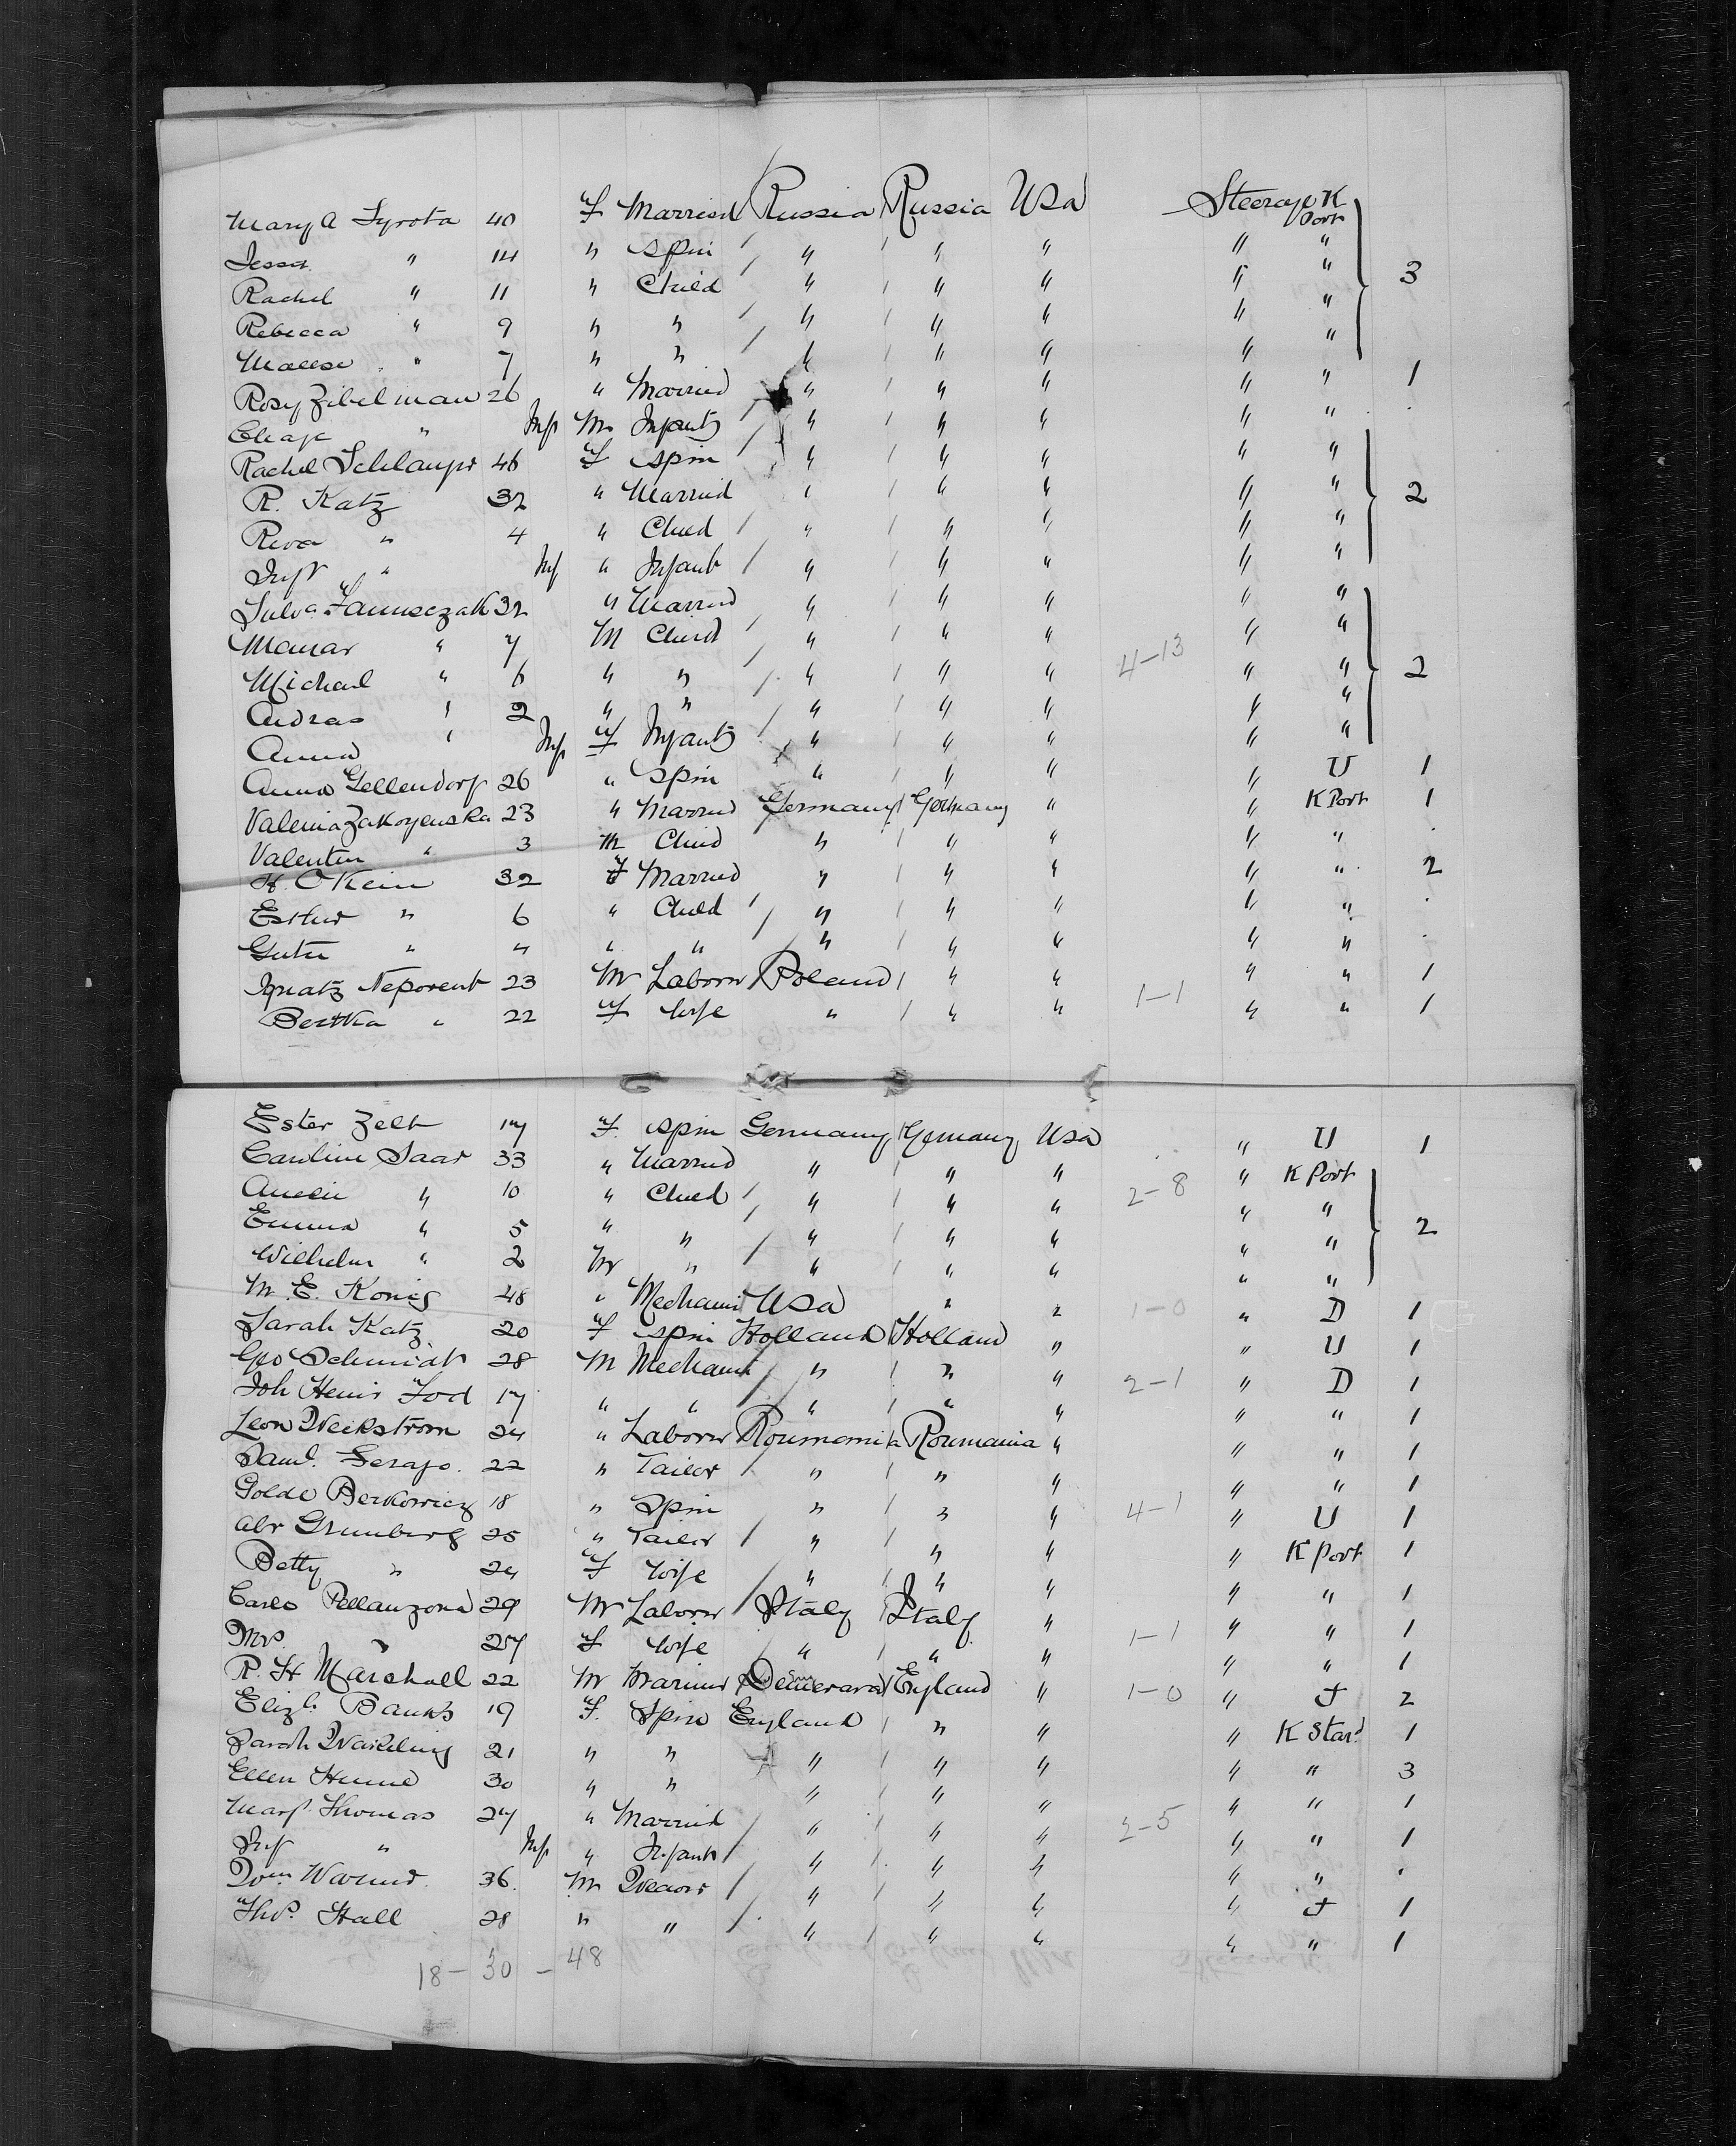 Mary A Syrota 40 F Married Russia Russia USA Steerage K Port
Jessa " 14 " Spin " " " " " 3
Rachel " 11 " Child " " " " "
Rebecca " 9 " " " " " " "
" 7 " " " " " " "
Rosy Zibelman 26 " Married " " " " " 1
Chaje " Inft M Infant " " " " "
Rachel 46 F Spin " " " " "
R. Katz 32 " Married " " " " " 2
Riva " 4 " Child " " " " "
Inft " Inf " Infant " " " " "
32 " Married " " " " "
" 7 M Child " " " 4-13 " "
Michael " 6 " " " " " " " 2
Andras " 2 " " " " " " "
Anna " Inft F Infant " " " " "
Anna Gellendorf 26 " Spin " " " " U 1
Valenia Zakoyenska 23 " Married Germany Germany " " K Port 1
Valentin " 3 M Child " " " " "
H. O Keim 32 F Married " " " " " 2
Esther " 6 " Child " " " " "
" " " " " " " " "
Ignatz Neporent 23 M Laborer Poland " " 1-1 " " 1
Bertha " 22 F Wife " " " " " 1
Ester Zelt 17 F. Spin Germany Germany USA " U 1
Caroline Saar 33 " Married " " " " K Port
" 10 " Child " " " 2-8 " "
Emma " 5 " " " " " " " 2
Wilhelm " 2 M " " " " " "
M. E. Konig 48 " Mechanic USA " " 1-0 " D 1
Sarah Katz 20 F Spin Holland Holland " " U 1
Geo Schmidt 28 M Mechanic " " " 2-1 " D 1
Joh Henir Tod 17 " " " " " " " 1
Leon Weckstrom 24 " Laborer Roumania Roumania " " " 1
Saml. 22 " Tailor " " " " " 1
Golde Berkowicz 18 " Spin " " " 4-1 " U 1
Abr Grunberg 25 " Tailor " " " " K Port 1
Betty " 24 F Wife " " " " " 1
Carlo Pellanzona 29 M Laborer Italy Italy " 1-1 " " 1
Mrs. " 27 F Wife " " " " " 1
R. H Marshall 22 M Mariner Demerara England " 1-0 " J 2
Elizh. Banks 19 F. Spin England " " " K Stard 1
Sarah 21 " " " " " " " 3
Ellen Hume 30 " " " " " " " 1
Margt. Thomas 27 " Married " " " 2-5 " " 1
Inf " Inft " Infant " " " " "
Wm. 36. M Weaver " " " " J 1
Thos. Hall 28 " " " " " " " 1
18 - 30 - 48